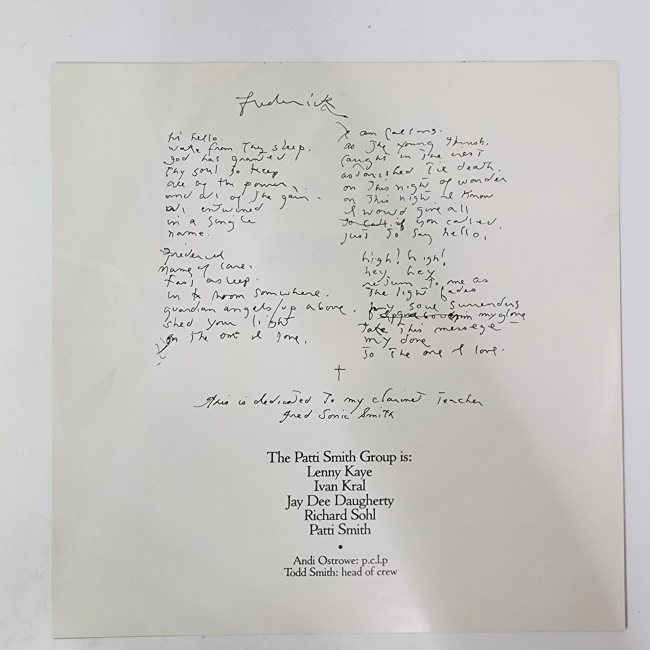 Frederick
hi hello.
wake from thy sleep.
god has granted
thy soul to keep
all of the power.
and all of the gain.
all entwined
in a single
name.
Frederick
name of care.
fast asleep.
in a room somewhere.
guardian angels/up above.
shed your light
on the one I love.
I am calling.
as the young thrush.
caught in the nest
astonished death
on this night of wonder
on this night I know
I would give all
if you called.
just to say hello.
high! high!
hey hey
return to me as
the light fades
my soul surrenders
my glove
take this message
my dove
to the one I love.
†
this is dedicated to my clarinet teacher
fred Sonic Smith
The Patti Smith Group is:
Lenny Kaye
Ivan Kral
Jay Dee Daugherty
Richard Sohl
Patti Smith
•
Andi Ostrowe: p.c.l.p
Todd Smith: head of crew